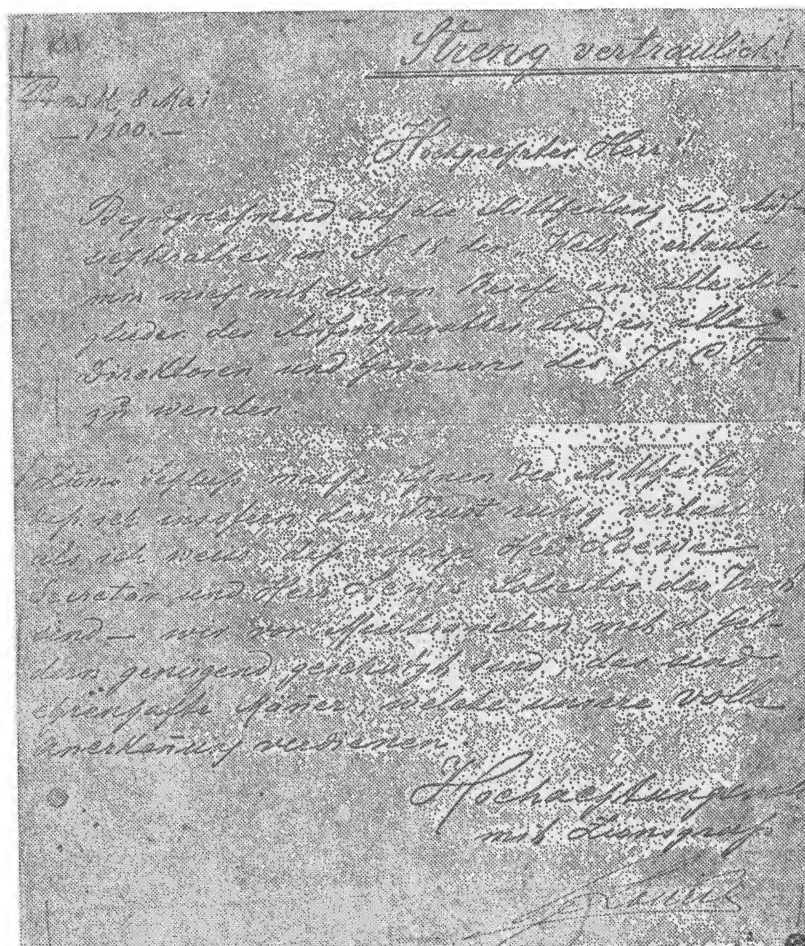 Streng vertraulich!
Pinsk, 8 Mai
— 1900. —
Hochgeehrter Herr!
Bezugnehmend auf die Mittheilung des Auf-
sichtsrathes in N 18 der "Welt" erlaube
mich mit diesem Briefe an alle Mit-
glieder des Aufsichtsrathes und an alle
Direktoren und Governors des J. C. T.
zu wenden.
Zum Schluss mache Ihnen die Mittheilung
dass ich insofern den Trust ruhig
als ich weiss dass solange Herr
Secretär und Herr der Bank
sind — wir vor mit d Gel-
dern genügend geschützt sind, das sind
ehrenhafte Männer, welche unsere volle
Anerkennung verdienen.
Hochachtungsvoll
mit Zionsgruss